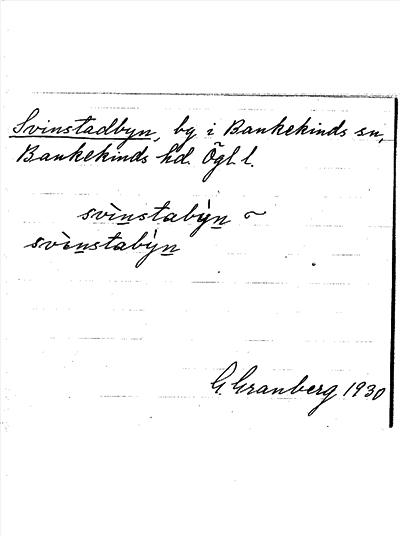 Svinstadbyn, by i Bankekinds sn,
Bankekinds hd. Ögl. l.
svìnstabýn ~
svìnstabýn
G. Granberg 1930